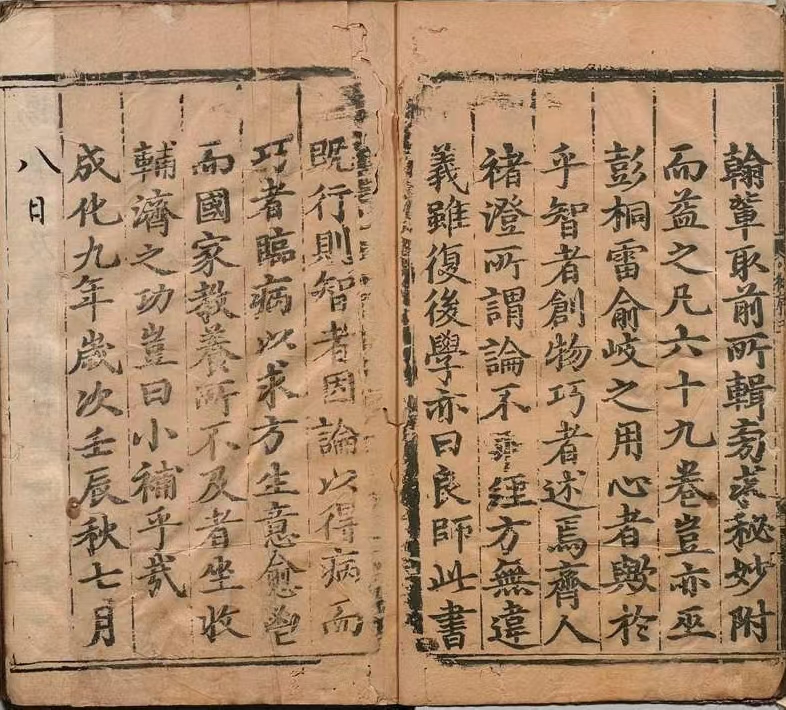 翰軰取前所輯旁求秘妙附
而益之凡六十九卷豈亦巫
彭桐雷俞岐之用心者歟於
乎智者創物巧者述焉齊人
褚澄所謂論不經方無違
義雖復後學亦曰良師此書
既行則智者因論以得病而
巧者臨病以求方生意愈
而國家教養所不及者坐收
輔濟之功豈曰小補乎哉
成化九年嵗次壬辰秋七月
八日